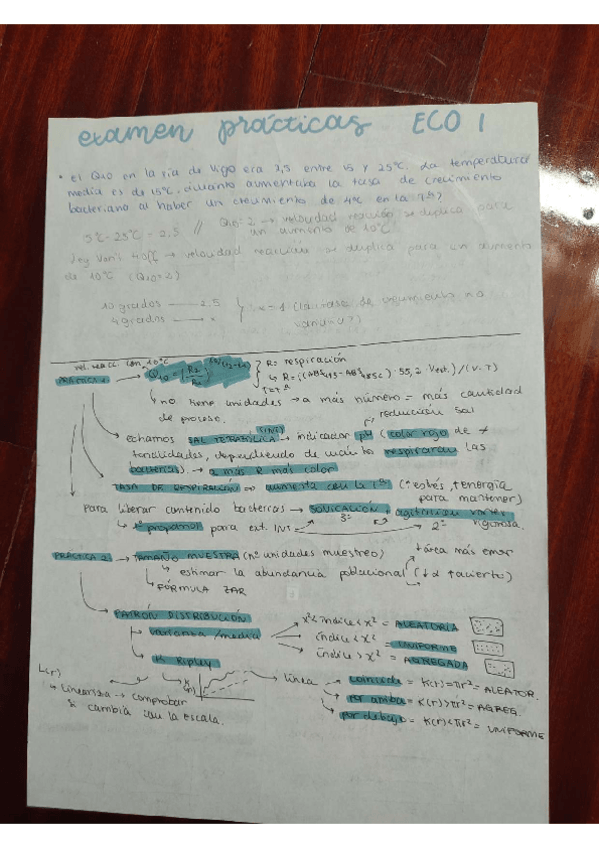 examen prácticas ECO 1
• el Q10 en la ría de Vigo era 2,5 entre 15 y 25°C. La temperatura
media es de 15°C. ¿cuánto aumentaba la tasa de crecimiento
bacteriano al haber un crecimiento de 4°C en la Tª?
5°C - 25°C - 2.5 // Q10=2 → velocidad reacción se duplica para
un aumento de 10°C
→ velocidad reacción se duplica para un aumento
de 10°C (Q10=2)
10 grados —— 2.5
4 grados —— x
x = 1 (la tasa de crecimiento no
PRÁCTICA 1 → Q10 = (R2/R1) R = respiración
→ no tiene unidades → a más número = más cantidad
de proceso.
reducción sal
echamos SAL TETRAZÓLICA (INT) → indicador pH (color rojo de ≠
tonalidades, dependiendo de cuánto respiraron las
bacterias) → a más R más color
TASA DE RESPIRACIÓN ⇒ aumenta con la Tª (↑estrés, ↑energía
para mantener)
para liberar contenido bacterias → SONICACIÓN + agitación vórtex
3º 2º vigorosa.
1º propanol para ext. INT
PRÁCTICA 2 → TAMAÑO MUESTRA (nº unidades muestreo) ↑área más error
→ estimar la abundancia poblacional (↓α ↑acierto)
→ FÓRMULA ZAR
PATRÓN DISTRIBUCIÓN
→ varianza/media
x²<índice<x² = ALEATORIA
índice<x² = UNIFORME
índice>x² = AGREGADA
→ K Ripley
L(r)
→ Linealiza → comprobar
si cambia con la escala.
K(r)
línea → coincide = K(r)=πr² = ALEATOR.
por arriba = K(r)>πr² = AGREG.
por debajo = K(r)<πr² = UNIFORME